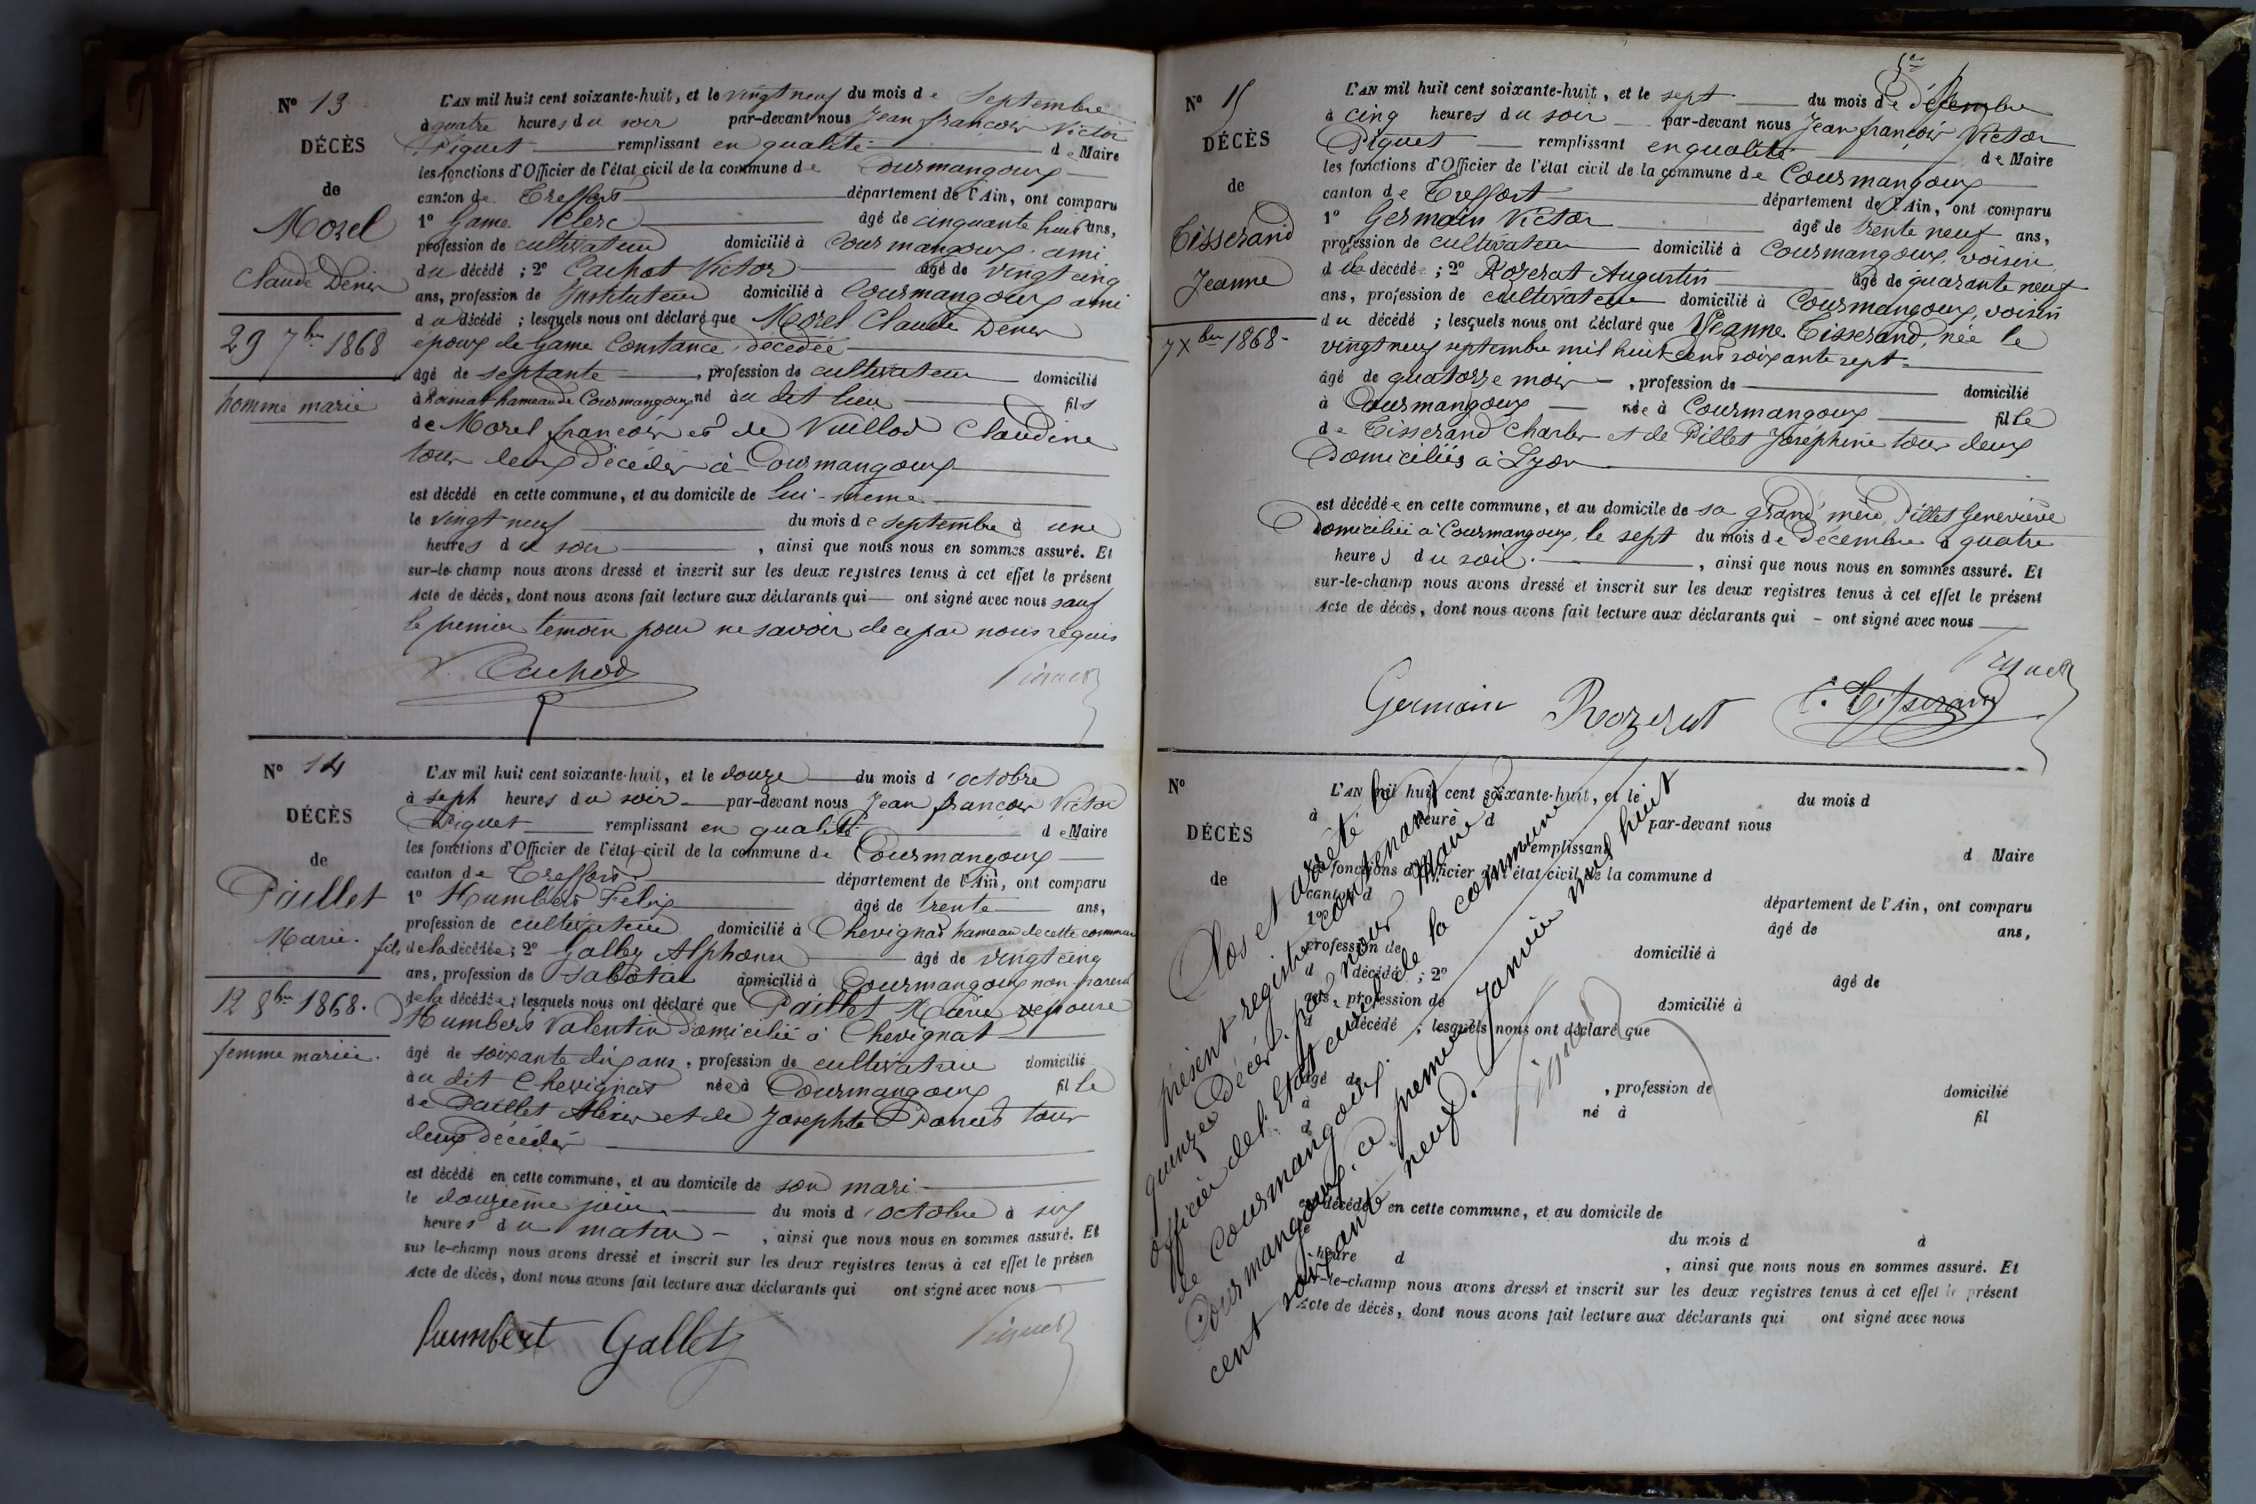 N° 13
DÉCÈS
de
Morel
Claude Denis
29 7bre 1868
homme marié
L'AN mil huit cent soixante-huit, et le vingt neuf du mois de Septembre
à quatre heures du soir par-devant nous Jean françois Victor
Piquet remplissant en qualité de Maire
les fonctions d'Officier de l'état civil de la commune de Courmangoux
canton de Treffort département de l'Ain, ont comparu
1° Game Clerc âgé de cinquante huit ans,
profession de cultivateur domicilié à Courmangoux ami
du décédé ; 2° Cachot Victor âgé de vingt cinq
ans, profession de Instituteur domicilié à Courmangoux ami
du décédé ; lesquels nous ont déclaré que Morel Claude Denis
époux de Game Constance décédée
âgé de septante , profession de cultivateur domicilié
à hameau de Courmangoux né au dit lieu fils
de Morel françois et de Vuillod Claudine
tous deux décédés à Courmangoux
est décédé en cette commune, et au domicile de lui-même
le vingt neuf du mois de septembre à une
heures du soir , ainsi que nous nous en sommes assuré. Et
sur-le-champ nous avons dressé et inscrit sur les deux registres tenus à cet effet le présent
Acte de décès, dont nous avons fait lecture aux déclarants qui ont signé avec nous sauf
le premier témoin pour ne savoir de ce par nous requis
V. Cachod
Piquet
N° 14
DÉCÈS
de
Paillet
Marie.
12 8bre 1868.
femme mariée.
L'AN mil huit cent soixante-huit, et le douze du mois d'octobre
à sept heures du soir par-devant nous Jean françois Victor
Piquet remplissant en qualité de Maire
les fonctions d'Officier de l'état civil de la commune de Courmangoux
canton de Treffort département de l'Ain, ont comparu
1° Humbert Felix âgé de trente ans,
profession de cultivateur domicilié à Chevignat hameau de cette commune
fils de la décédée ; 2° Galley Alphonse âgé de vingt cinq
ans, profession de Sabotier domicilié à Courmangoux non parent
de la décédée ; lesquels nous ont déclaré que Paillet Marie épouse
Humbert Valentin domicilié à Chevignat
âgé de soixante dix ans , profession de cultivatrice domicilié
au dit Chevignat née à Courmangoux fille
de Paillet Alexis et de Josephte tous
deux décédés
est décédé en cette commune, et au domicile de son mari
le douzième jour du mois d'octobre à six
heures du matin , ainsi que nous nous en sommes assuré. Et
sur-le-champ nous avons dressé et inscrit sur les deux registres tenus à cet effet le présen
Acte de décès, dont nous avons fait lecture aux déclarants qui ont signé avec nous
humbert Galley
Piquet
N° 15
DÉCÈS
de
Tisserand
Jeanne
7 Xbre 1868
L'AN mil huit cent soixante-huit, et le sept du mois de décembre
à cinq heures du soir par-devant nous Jean françois Victor
Piquet remplissant en qualité de Maire
les fonctions d'Officier de l'état civil de la commune de Courmangoux
canton de Treffort département de l'Ain, ont comparu
1° Germain Victor âgé de trente neuf ans,
profession de cultivateur domicilié à Courmangoux, voisin
d décédé ; 2° Rozerat Augustin âgé de quarante neuf
ans, profession de cultivateur domicilié à Courmangoux, voisin
du décédé ; lesquels nous ont déclaré que Jeanne Tisserand, née le
vingt neuf septembre mil huit cent soixante sept
âgé de quatorze mois , profession de domicilié
à Courmangoux née à Courmangoux fille
de Tisserand Charles et de Pillet Joséphine tous deux
Domiciliés à Lyon
est décédée en cette commune, et au domicile de sa grand'mère Pillet Geneviève
Domiciliée à Courmangoux, le sept du mois de décembre à quatre
heures du soir. , ainsi que nous nous en sommes assuré. Et
sur-le-champ nous avons dressé et inscrit sur les deux registres tenus à cet effet le présent
Acte de décès, dont nous avons fait lecture aux déclarants qui ont signé avec nous
Piquet
Germain Rozerat C. Tisserand
N°
DÉCÈS
de
L'AN mil huit cent soixante-huit, et le du mois d
à heure d par-devant nous
remplissant d Maire
les fonctions d'Officier de l'état civil de la commune d
canton d département de l'Ain, ont comparu
1° âgé de ans,
profession de domicilié à
d décédé ; 2° âgé de
ans, profession de domicilié à
d décédé ; lesquels nous ont déclaré que
âgé de , profession de domicilié
à né à fil
d
est décédé en cette commune, et au domicile de
le du mois d à
heure d , ainsi que nous nous en sommes assuré. Et
sur-le-champ nous avons dressé et inscrit sur les deux registres tenus à cet effet le présent
Acte de décès, dont nous avons fait lecture aux déclarants qui ont signé avec nous
Clos et arrêté le
présent registre contenant
quinze Décès par nous Maire
officier de l'Etat civil de la commune
de Courmangoux.
Courmangoux, ce premier Janvier mil huit
cent soixante neuf.
Piquet